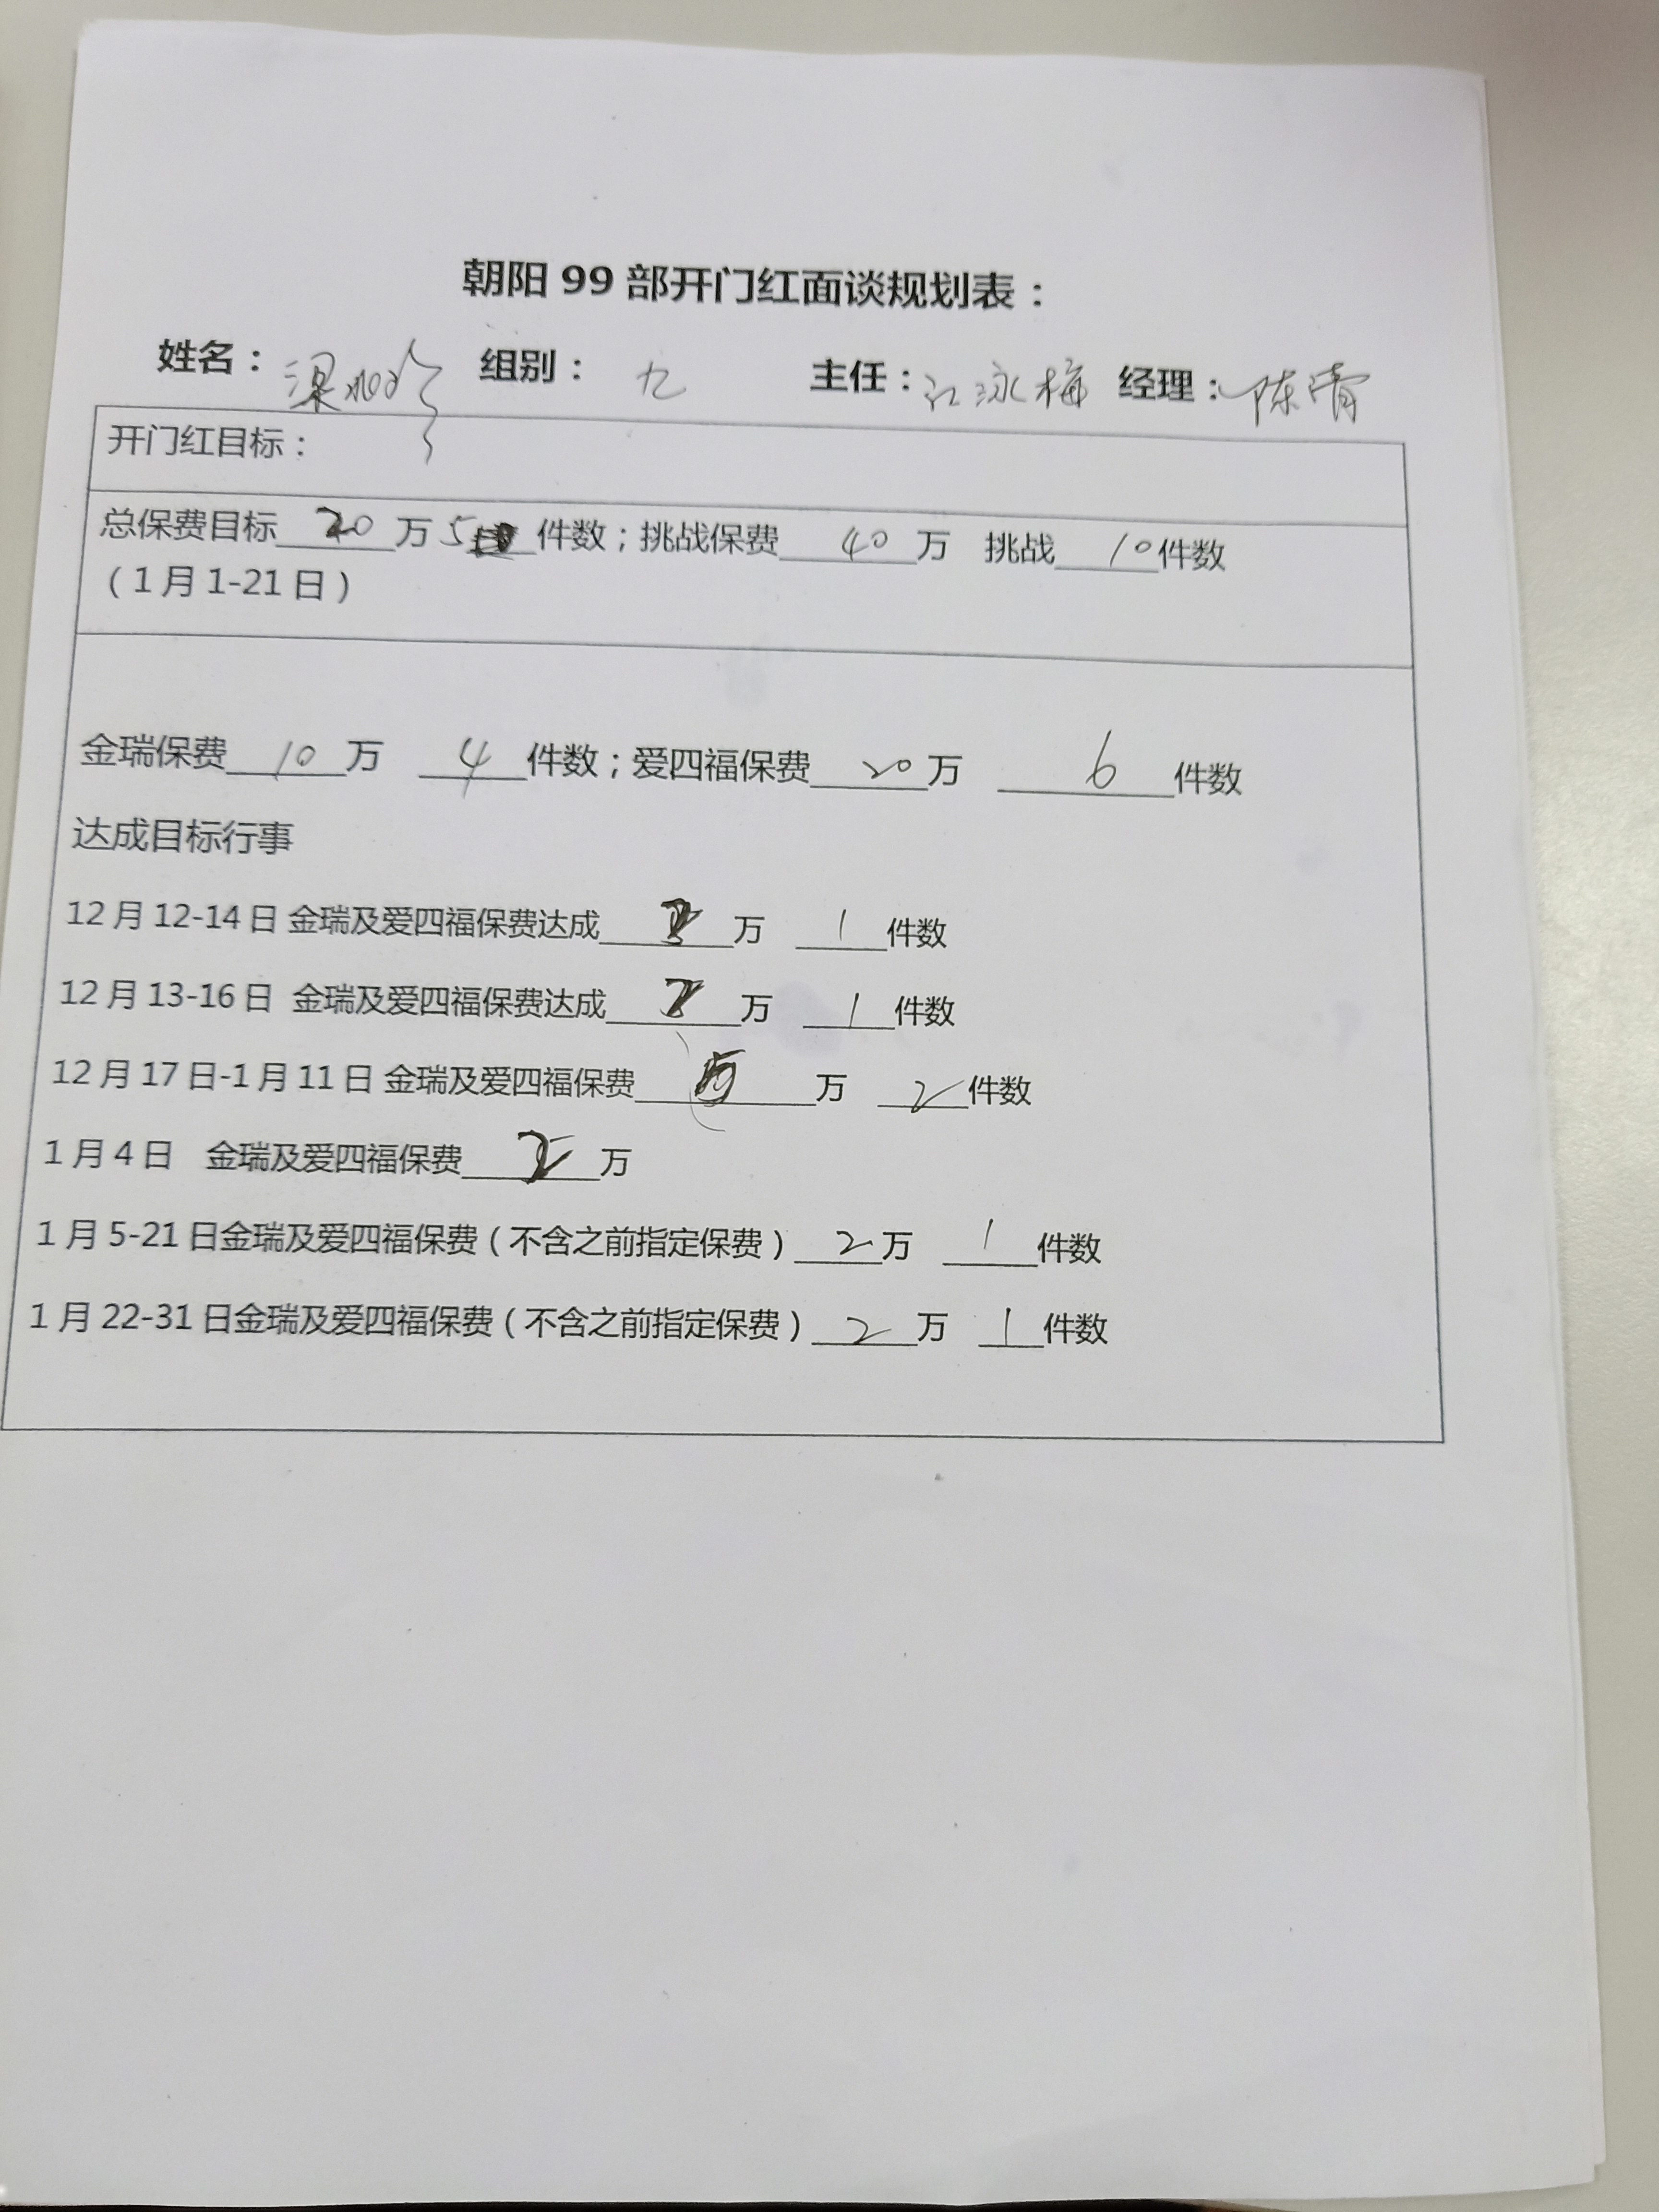 朝阳 99 部开门红面谈规划表：
姓名： 梁 组别： 九 主任：江泳梅 经理：陈清
开门红目标：
总保费目标 20 万 5 件数；挑战保费 40 万 挑战 10 件数
（1 月 1-21 日）
金瑞保费 10 万 4 件数；爱四福保费 20 万 6 件数
达成目标行事
12 月 12-14 日 金瑞及爱四福保费达成 万 1 件数
12 月 13-16 日 金瑞及爱四福保费达成 万 1 件数
12 月 17 日-1 月 11 日 金瑞及爱四福保费 万 2 件数
1 月 4 日 金瑞及爱四福保费 万
1 月 5-21 日金瑞及爱四福保费（不含之前指定保费） 2 万 1 件数
1 月 22-31 日金瑞及爱四福保费（不含之前指定保费） 2 万 1 件数